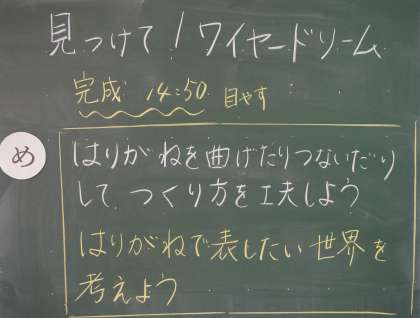 見つけて!ワイヤードリーム
完成 14:50 目やす
め
はりがねを曲げたりつないだり
して、つくり方を工夫しよう
はりがねで表したい世界を
考えよう